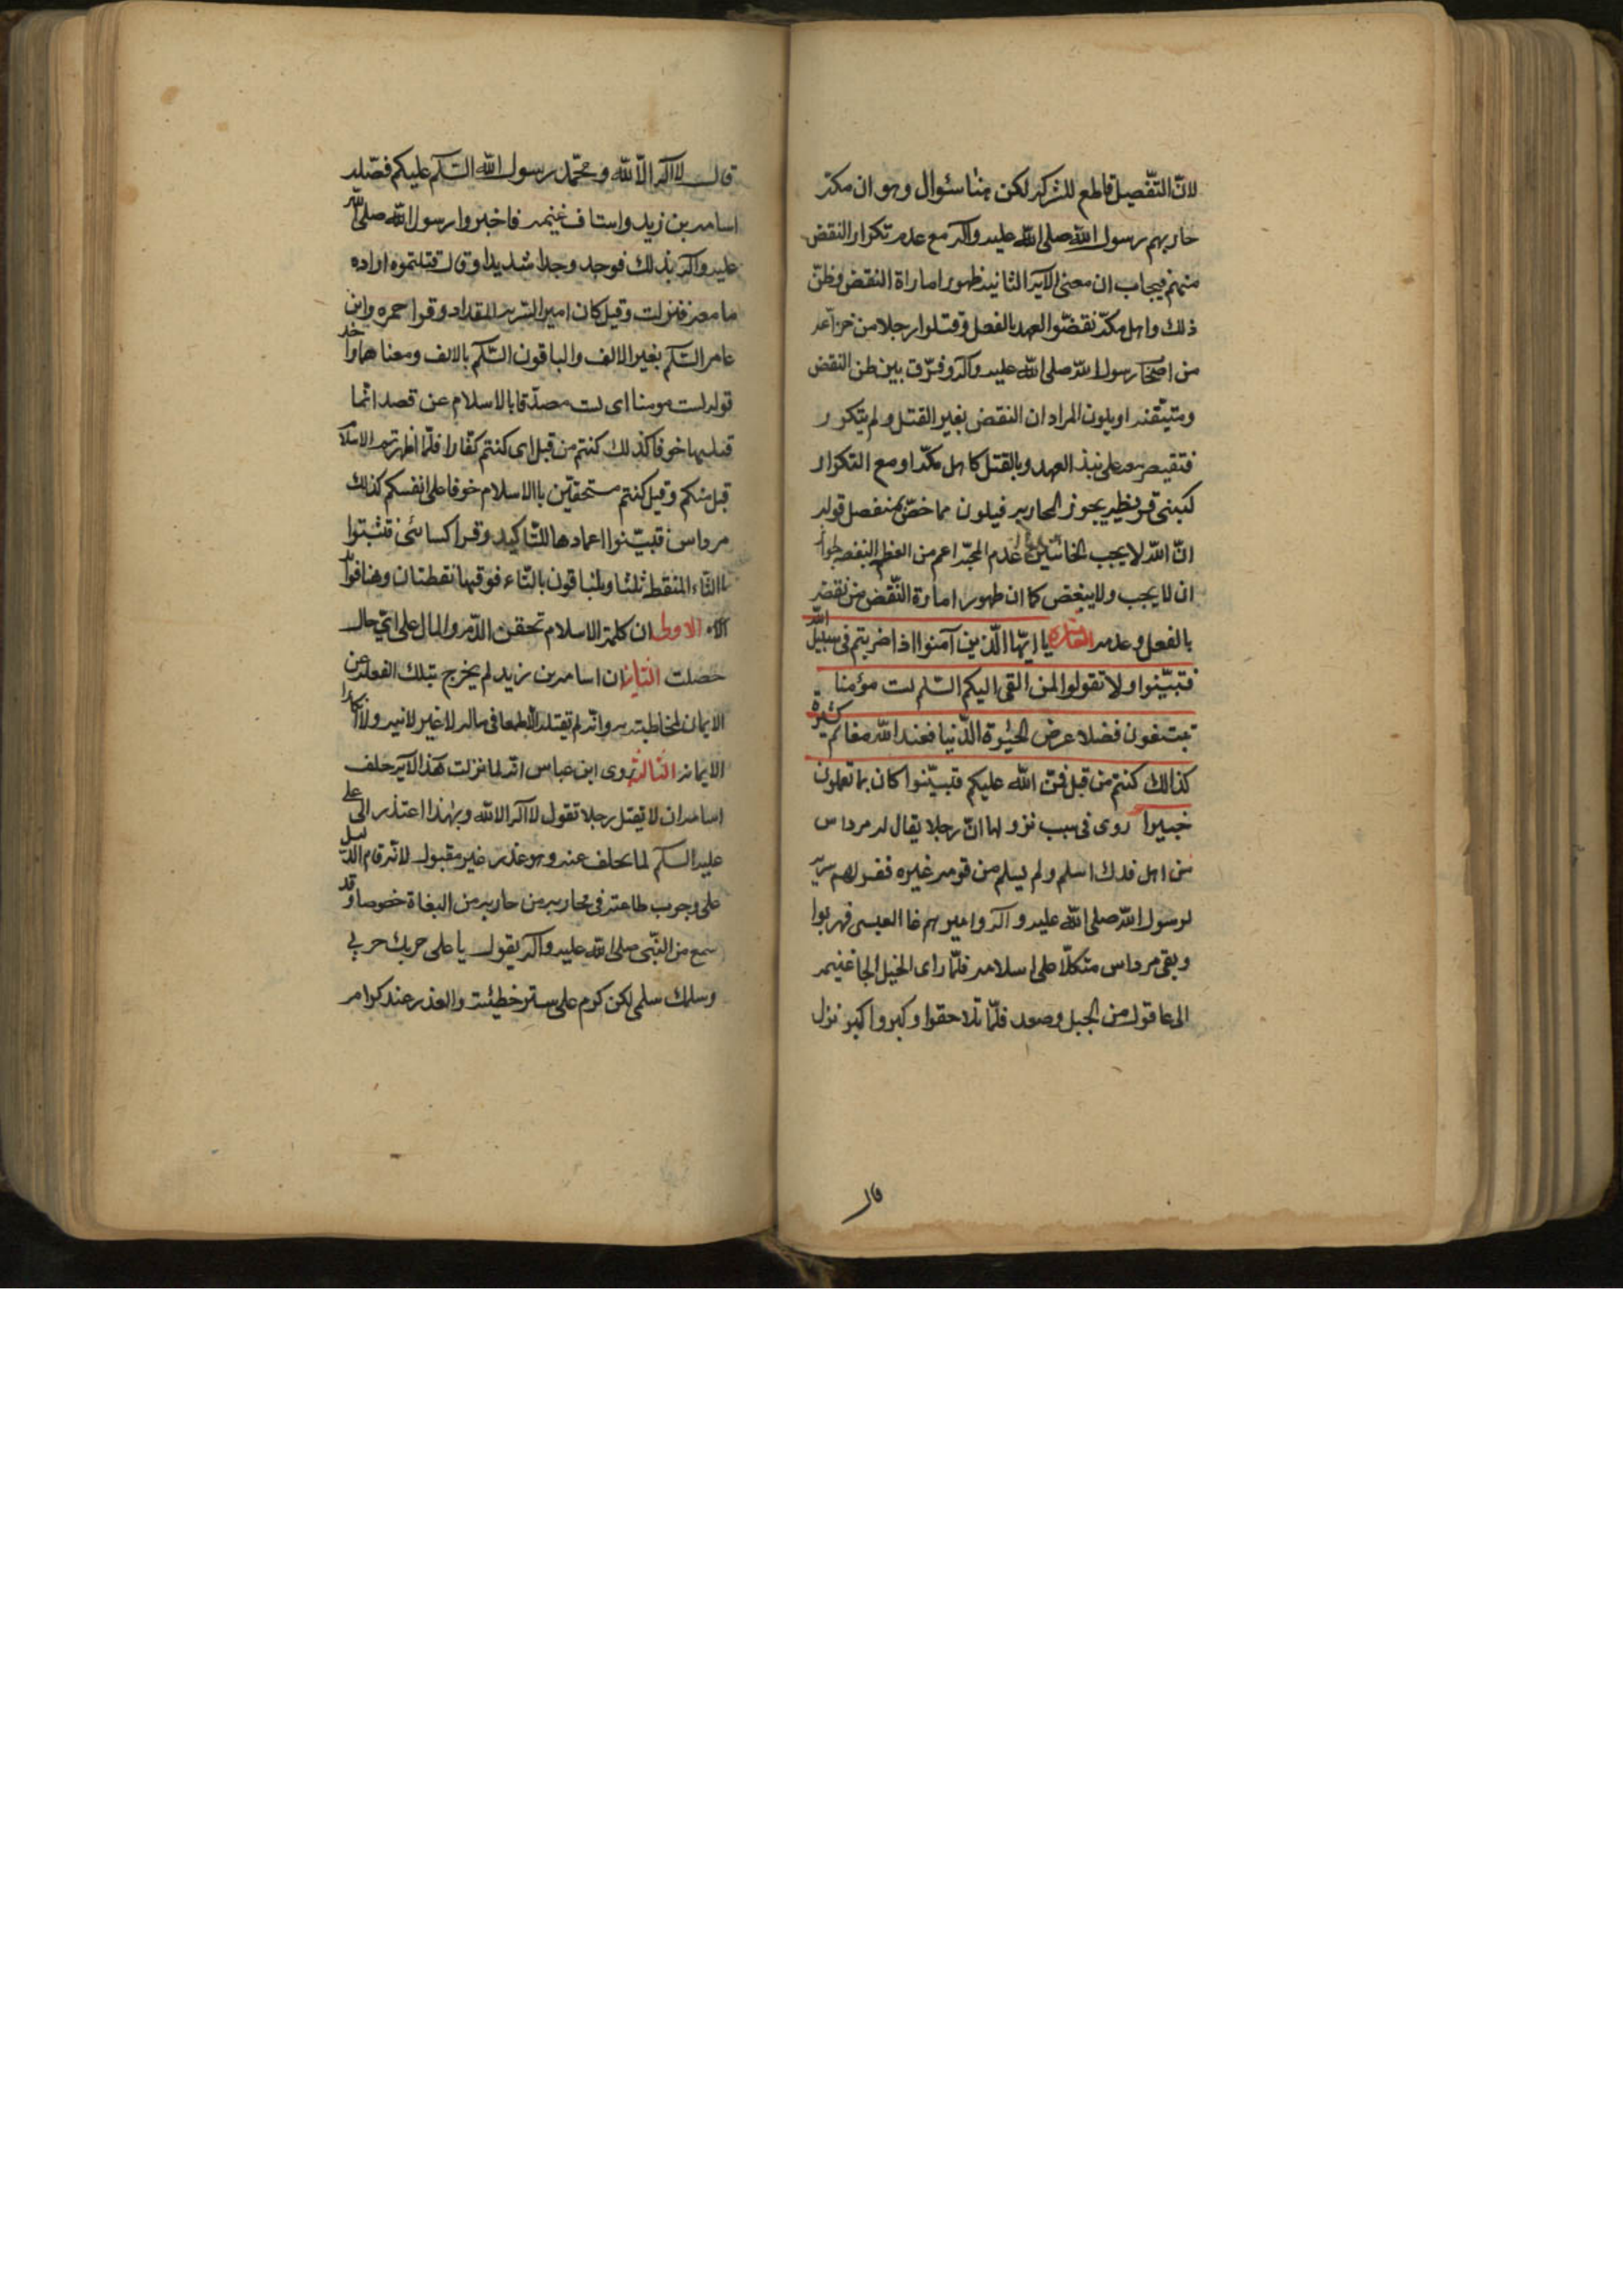 لانّ التفّصيل قاطع للشركه لكن هنا سئوال وهو ان مكة
حاربهم رسول الله صلى الله عليه وآله مع عدم تكرار النقض
منهم فيجاب ان معنى الآية الثانية ظهور اماراة النقض وظنّ
ذلك واهل مكّة نقضّوا العهد بالفعل وقتلوا رجلا من خزاعة
من اصحا رسول الله صلى الله عليه وآله وفرّق بين ظن النقض
ومتيّقنه او يكون المراد ان النقض بغير القتل ولم يتكرر
فتقيصر على نبذ العهد وبالقتل كاهل مكّة او مع التكرار
كبنى قريظه يجوز المحاربه فيكون مما خصّ بمنفصل قوله
انّ الله لا يجب الخائنين عدم المحبّة اعم من البغض
ان لا يجب ولا يبغض كما ان ظهور امارة النّقض من نقضه
بالفعل وعدمه العاشره يا ايّها الّذين آمنوا اذا ضربتم فى سبيل الله
فتبيّنوا ولا تقولوا لمن القى اليكم السّلم لست مؤمنا
تبتغون فضلا عرض الحيٰوة الدّنيا فعند الله مغانم كثيرة
كذالك كنتم من قبل فمنّ الله عليكم فتبيّنوا كان بما تعملون
خبيرا روى فى سبب نزولها انّ رجلا يقال له مرداس
من اهل فدك اسلم ولم يسلم من قومه غيره فغزلهم سريّة
لرسول الله صلى الله عليه وآله واميرهم غا العيسى فهربوا
وبقى مرداس متكلّا على اسلامه فلمّا راى الخيل الجا غنيمه
الى عاقول من الجبل وصعد فلمّا تلاحقوا وكبروا كبر نزل
قال
قال لا اله الّا الله ومحمّد رسول الله السّلام عليكم فقتله
اسامه بن زيد واستاق غنيمه فاخبروا رسول الله صلى الله
عليه وآله بذلك فوجد وجدا شديدا وقال قتلتموه اراده
ما معه فنزلت وقيل كان امير السّريه المقداد وقرا حمزه وابن
عامر السّلم بغير الالف والباقون السّلام بالالف ومعناهما واحد
قوله لست مومنا اى لست مصدّقا بالاسلام عن قصد انّما
قبلها خوفا كذلك كنتم من قبل اى كنتم كفّارا فلمّا اظهرتم الاسلام
قبل منكم وقيل كنتم مستخفين باالاسلام خوفا على انفسكم كذلك
مرداس فتبيّنوا اعمادها للتّاكيد وقرا كسائى فتثبتوا
باالثّاء المنقطه ثلثا والباقون بالتّاء فوقها نقطتان وهنا فوائد
الاولى ان كلمة الاسلام تحقن الدّم والمال على اىّ حال
حصلت الثانية ان اسامه بن زيد لم يخرج بتلك الفعله عن
الايمان لمخاطبته به وانّه لم يقتله الّا طمعا فى ماله لا غير لانيه ولا انكارا
الايمانه الثالثة روى ابن عباس انّه لما نزلت هذا الآية حلف
اسامه ان لا يقتل رجلا تقول لا اله الا الله وبهذا اعتذر الى على
عليه السّلام لما تخلف عنه وهو عذر غير مقبول لانّه قام الدّليل
على وجوب طاعته فى محاربه من حاربه من البغاة خصوصا وقد
سمع من النّبى صلى الله عليه وآله يقول يا على حربك حربى
وسلمك سلمى لكن كرم على ستر خطيئته والعذر عند كرام